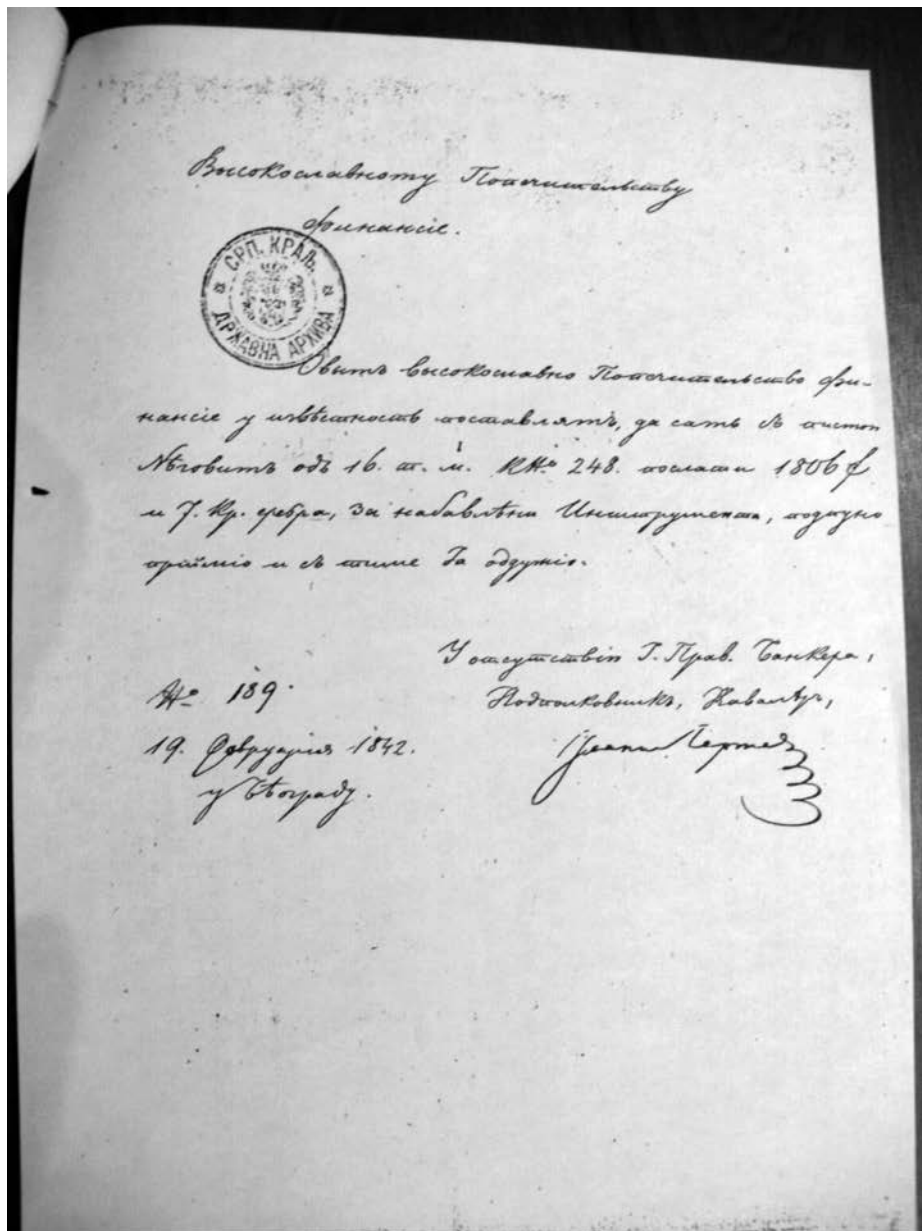 Высокославному Попечительству
финансіе.
СРП. КРАЉ.
ДРЖАВНА АРХИВА
Овымъ высокославно Попечительство фи-
нансіе у извѣстность поставлямъ, да самь съ писмом
Нѣговимъ одъ 16. т. м. № 248. послати 1806 f
и 7. Кр. сребра, за набавлѣна Инштрумента, подпуно
пріймio и съ тиме Га одужіо.
У отсутствію Г. Прав. Банкера,
№ 189.
Подполковникъ, Кавалѣръ,
19. Февруарія 1842.
у Бѣограду.